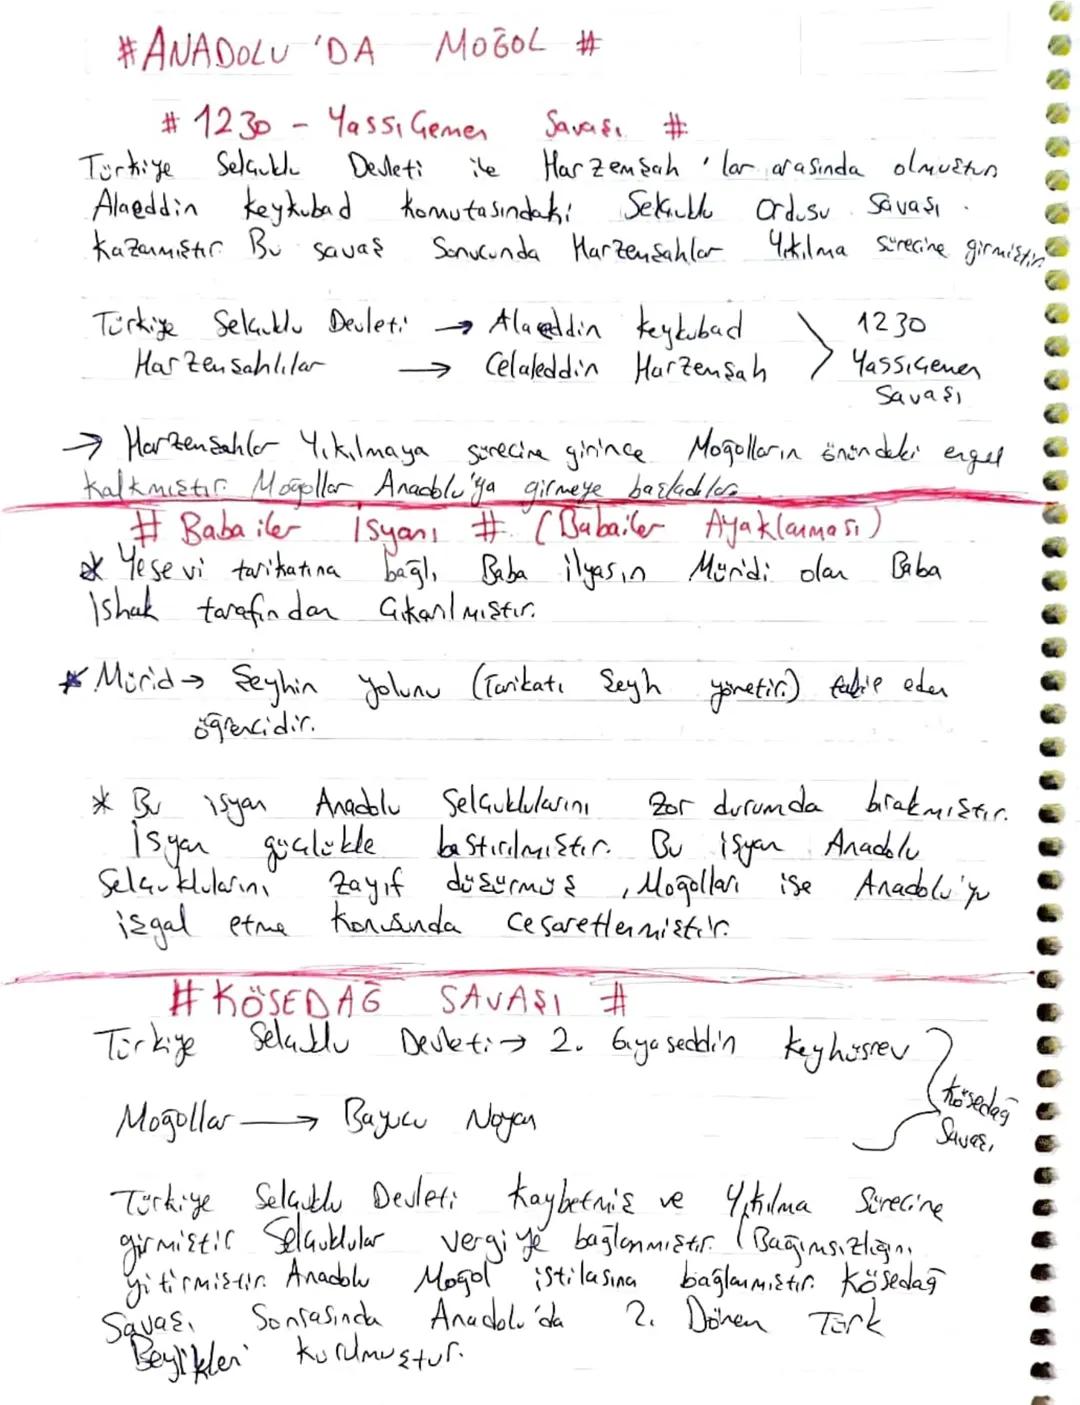 #ANADOLU 'DA MOĞOL #
# 1230 - Yassı Çemen Savaşı #
Türkiye Selçuklu Devleti ile Harzemşah 'lar arasında olmuştur
Alaeddin keykubad komutasındaki Selçuklu ordusu savaşı .
kazanmıştır. Bu savaş Sonucunda Harzemşahlar Yıkılma sürecine girmiştir.
Türkiye Selçuklu Devleti → Alaeddin keykubad 1230
Harzemşahlılar → Celaleddin Harzemşah Yassıçemen
Savaşı
→ Harzemşahlar Yıkılmaya sürecine girince Moğolların önündeki engel
kalkmıştır. Moğollar Anadolu'ya girmeye başladılar.
# Babailer İsyanı # (Babailer Ayaklanması)
* Yesevi tarikatına bağlı Baba ilyasın Müridi olan Baba
İshak tarafından Çıkarılmıştır.
* Mürid → Şeyhin yolunu (Tarikatı Şeyh yönetir) takip eden
öğrencidir.
* Bu isyan Anadolu Selçuklularını zor durumda bırakmıştır.
İsyan güçlükle bastırılmıştır. Bu isyan Anadolu
Selçuklularını zayıf düşürmüş , Moğolları ise Anadolu'yu
işgal etme konusunda cesaretlenmiştir.
# KÖSEDAĞ SAVAŞI #
Türkiye Selçuklu Devleti → 2. Gıyaseddin keyhüsrev
Kösedağ
Moğollar → Baycu Noyan Savaşı
Türkiye Selçuklu Devleti kaybetmiş ve Yıkılma Sürecine
girmiştir Selçuklular vergi ye bağlanmıştır. (Bağımsızlığını
yitirmiştir. Anadolu Moğol istilasına bağlanmıştır. Kösedağ
Savaşı Sonrasında Anadolu'da 2. Dönem Türk
Beylikleri kurulmuştur.